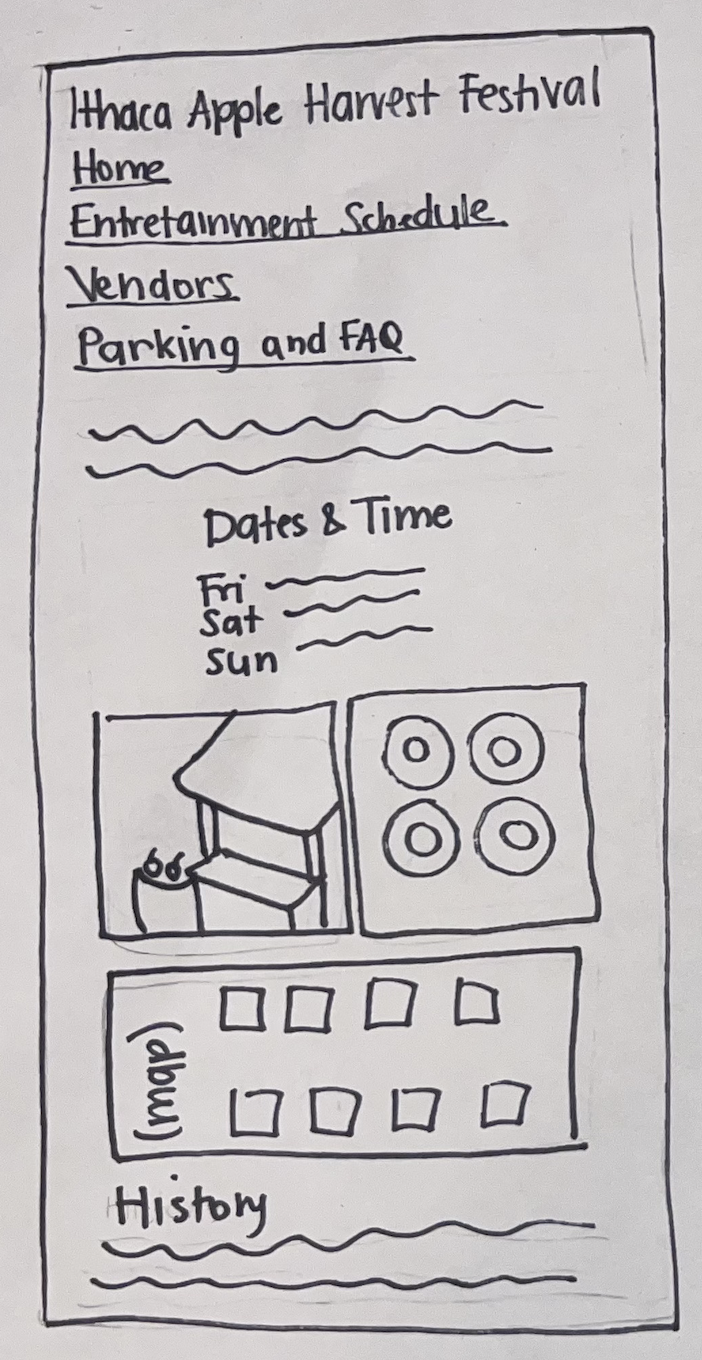 Ithaca Apple Harvest Festival
Home
Entretainment Schedule
Vendors
Parking and FAQ
Dates & Time
Fri
Sat
Sun
(map)
History